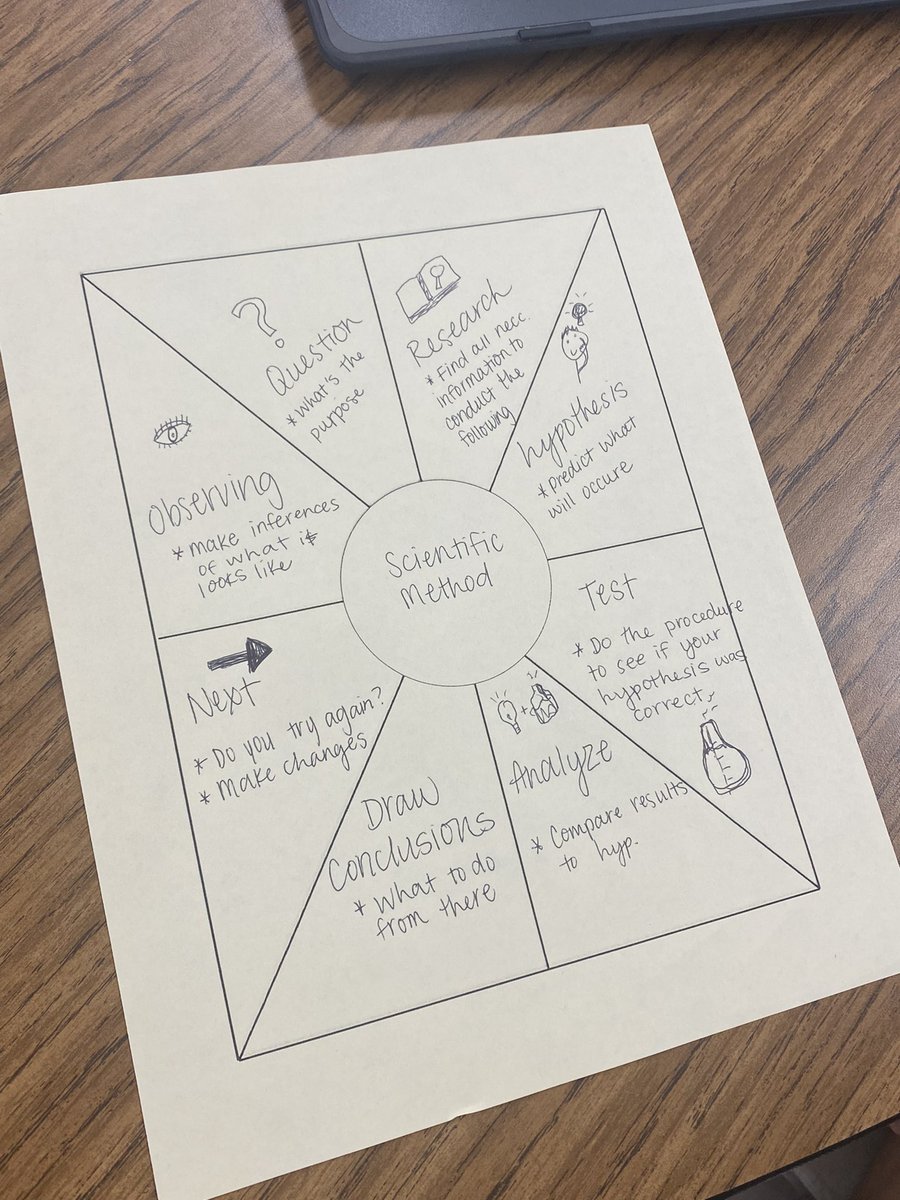 Scientific
Method
Observing
* make inferences
of what it
looks like
?
Question
* What's the
purpose
Research
* Find all necc.
information to
conduct the
following
hypothesis
* predict what
will occure
Test
* Do the procedure
to see if your
hypothesis was
correct
+
Analyze
* Compare results
to hyp.
Draw
Conclusions
* What to do
from there
Next
* Do you try again?
* Make changes